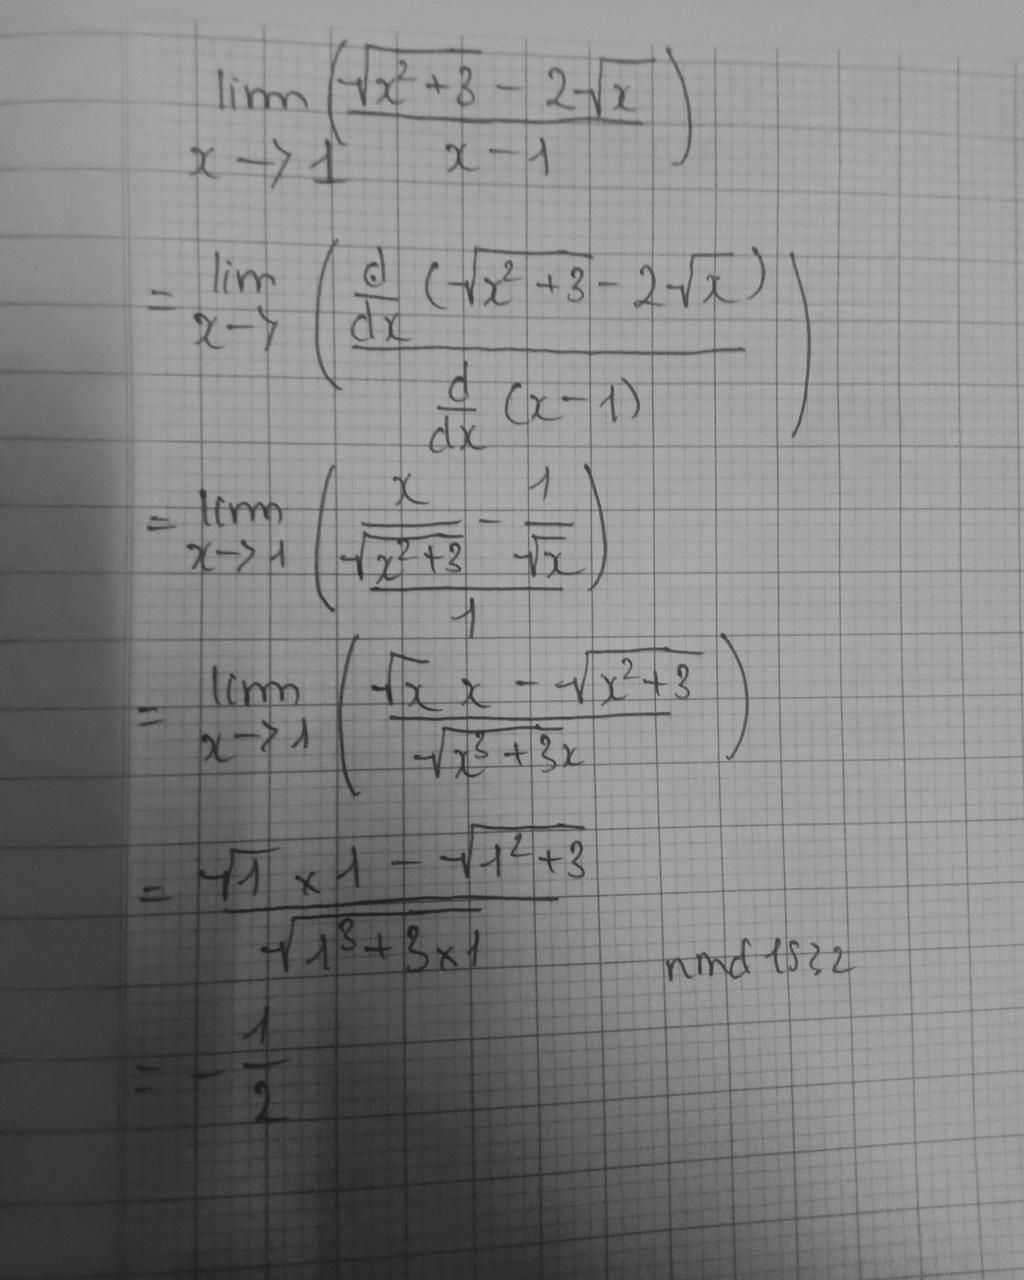 lim (√(x²+3) - 2√x)/(x-1)
x→1
= lim (d/dx (√(x²+3) - 2√x))/(d/dx (x-1))
x→
= lim (x/√(x²+3) - 1/√x)/1
x→1
= lim (√x x - √(x²+3))/√(x³+3x)
x→1
= (√1 × 1 - √(1²+3))/√(1³+3×1)
nmd 1532
= - 1/2